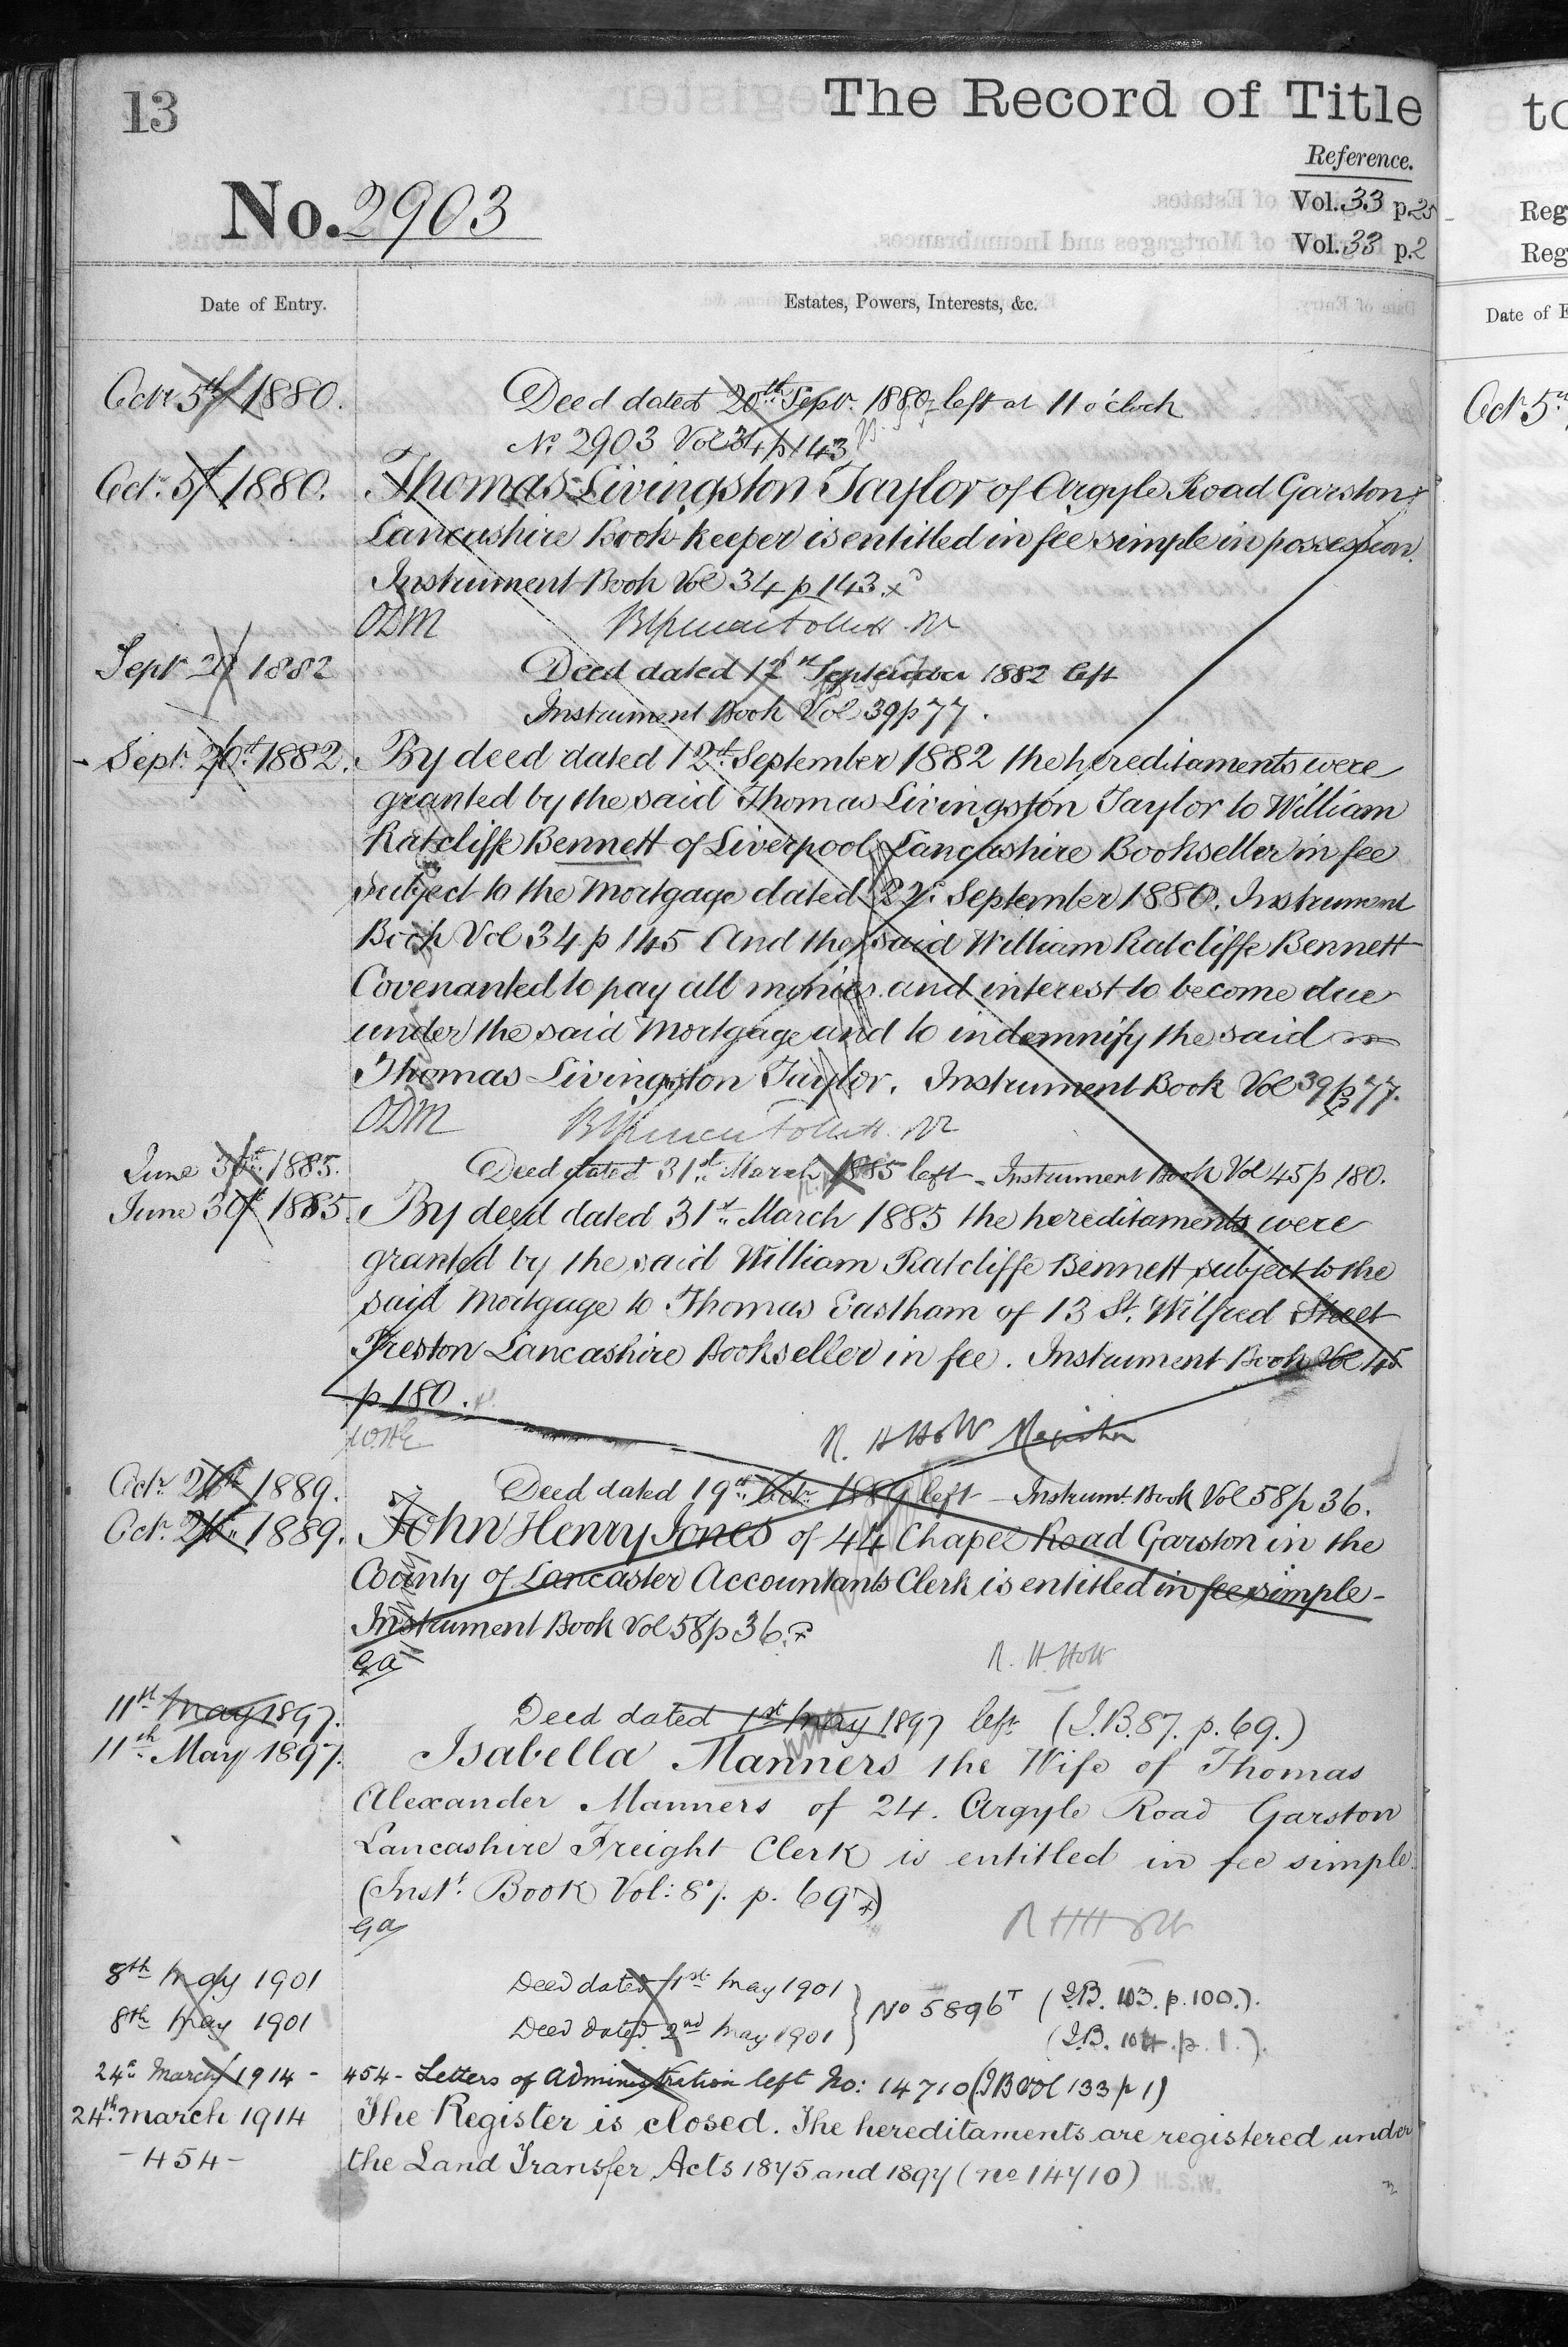 13
The Record of Title
Reference.
No. 2903
Vol. 33 p. 25
Vol. 33 p. 2
Date of Entry.
Estates, Powers, Interests, &c.
Octr 5th 1880.
Deed dated 20th Septr. 1880 left at 11 o'clock
No 2903 Vol 34 p 143
Octr. 5th 1880.
Thomas Livingston Taylor of Argyle Road Garston
Lancashire Book-keeper is entitled in fee simple in possession.
Instrument Book Vol 34 p 143.
ODM
Sept 1882
Deed dated 12th September 1882 left
Instrument Book Vol 39 p 77.
Sept. 20th 1882.
By deed dated 12th September 1882 the hereditaments were
granted by the said Thomas Livingston Taylor to William
Ratcliffe Bennett of Liverpool Lancashire Bookseller in fee
subject to the Mortgage dated September 1880. Instrument
Book Vol 34 p 145 And the said William Ratcliffe Bennett
Covenanted to pay all monies and interest to become due
under the said Mortgage and to indemnify the said
Thomas Livingston Taylor. Instrument Book Vol 39 p 77.
ODM
June 30th 1885.
Deed dated 31st March 1885 left - Instrument Book Vol 45 p 180.
June 30th 1885.
By deed dated 31st March 1885 the hereditaments were
granted by the said William Ratcliffe Bennett subject to the
said Mortgage to Thomas Eastham of 13 St. Wilfred Street
Preston Lancashire Bookseller in fee. Instrument Book Vol 45
p 180.
R. H Holt Registrar
Octr. 21st 1889.
Deed dated 19th Octr. 1889 left - Instrumt Book Vol 58 p 36.
Octr. 21st 1889.
John Henry Jones of 44 Chapel Road Garston in the
County of Lancaster Accountants Clerk is entitled in fee simple -
Instrument Book Vol 58 p 36.
GA
R. H. Holt
11th May 1897.
Deed dated 1st May 1897 left (I.B. 87. p. 69.)
11th May 1897.
Isabella Manners the Wife of Thomas
Alexander Manners of 24. Argyle Road Garston
Lancashire Freight Clerk is entitled in fee simple.
(Inst. Book Vol: 87. p. 69)
GA
R H Holt
8th May 1901
Deed dated 1st May 1901
No 5896T (I.B. 103. p. 100.).
8th May 1901
Deed dated 2nd May 1901
(I.B. 104. p. 1.).
24th March 1914 -
454 - Letters of Administration left No: 14710 (IB Vol 133 p 1)
24th March 1914
The Register is closed. The hereditaments are registered under
- 454 -
the Land Transfer Acts 1875 and 1897 (no 14710) H.S.W.
to
Reg
Reg
Date of E
Octr 5th